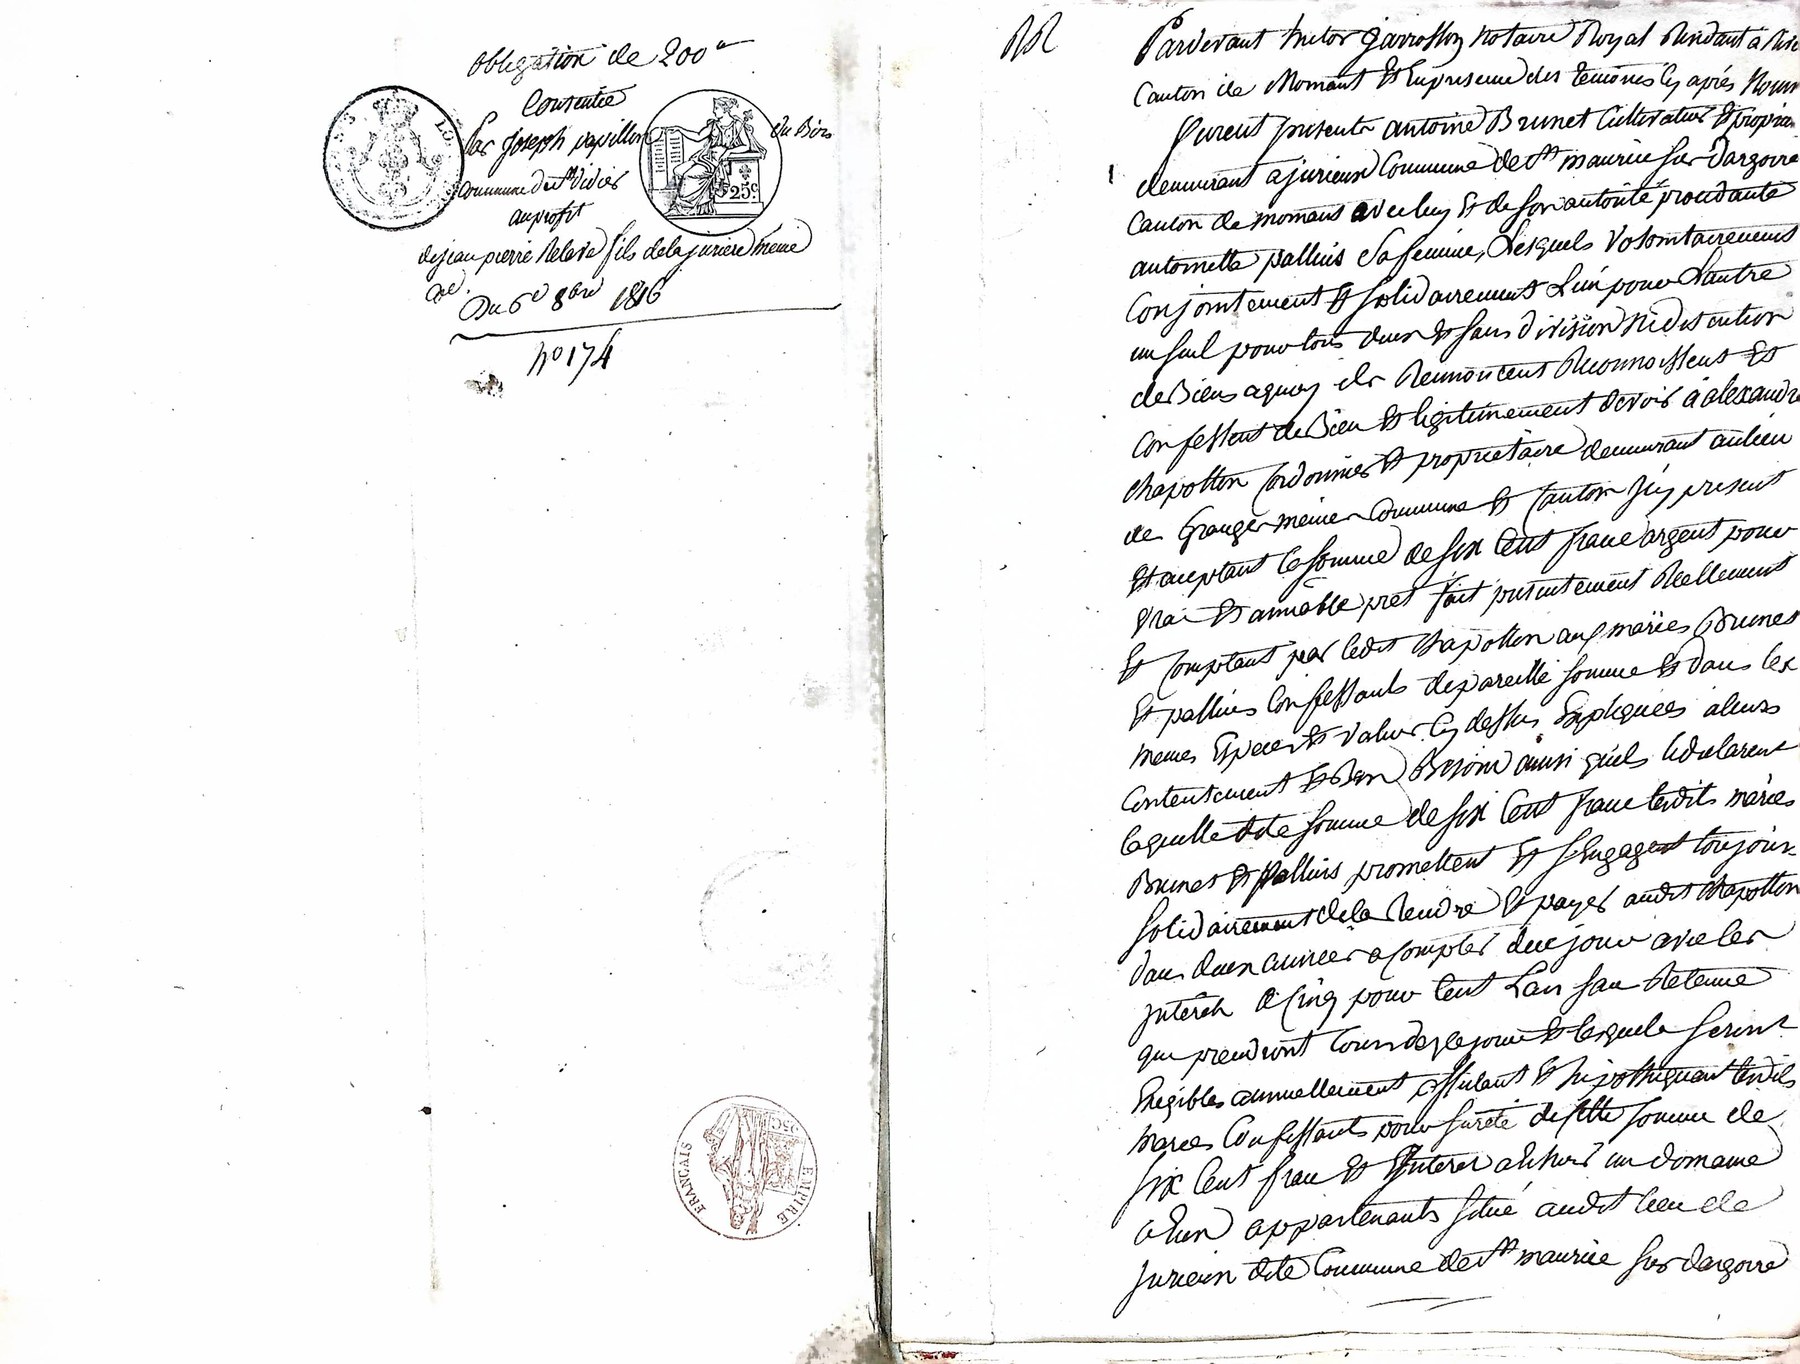 obligation de 200 fr
Consentie
Par Joseph papillon du Bois
Commune de St Didier
au profit
de jean pierre Releve fils de la juriere même
Du 6e 8bre 1816
No 174
LO
25c.
EMPIRE
FRANÇAIS
25C
Pardevant victor garrossy Notaire Royal Résidant à
Canton de Mornant Et En presence des temoins Cy après Nom
furent presents antoine Brunet Cultivateur Et propri
demeurant a jurieux Commune de St maurice sur dargoire
Canton de mornant avec luy Et de son autorité procedante
antoinette palluis Sa femme, Lesquels Volontairement
Conjointement Et Solidairement L'un pour L'autre
un seul pour tous deux Et sans division Ni discution
de Biens aquoy ils Renoncent Reconnoissent Et
Confessent de Bien Et légitimement devoir à alexandre
Chapotton Cordonnier Et proprietaire demeurant au lieu
de Granger même Commune Et Canton Icy present
Et aceptant la somme de six Cent franc argent pour
Vrai Et amiable prét fait presentement Réellement
Et Comptant par ledit Chapotton aux mariés Brunet
Et palluis Confessants de pareille somme Et dans les
memes Especes Et Valeur Cy dessus Expliquées a leurs
Contentement Et Bon Besoin ainsi quils le declarent
laquelle dite somme de six Cent franc lesdits mariés
Brunet Et palluis promettent Et s'Engagent toujours
solidairement de la Rendre Et payer audit Chapotton
dans deux années a Compter de ce jour avec les
Intérêts a Cinq pour Cent L'an sans Retenue
que prendront Cours dez ce jour Et lesquels seront
Exigibles annuellement affectant Et hipothequant lesdits
mariés Confessants pour sureté de cette somme de
six Cent franc Et Interet a Echoir un domaine
a Eux appartenants situé audit lieu de
Jurieux dite Commune de St maurice sur dargoire